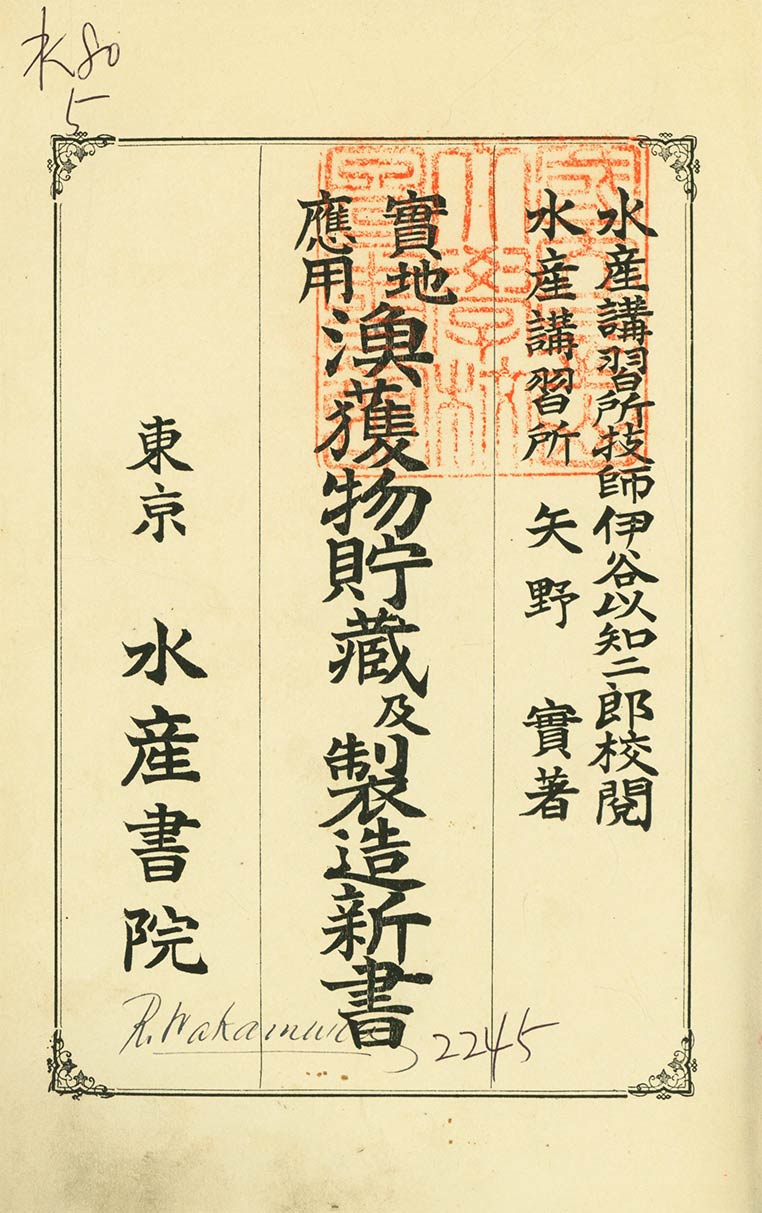 水産講習所技師伊谷以知二郎校閲
水産講習所 矢野 實著
實地
應用
漁獲物貯藏及製造新書
東京 水産書院
水80
5
R. Nakamura
2245